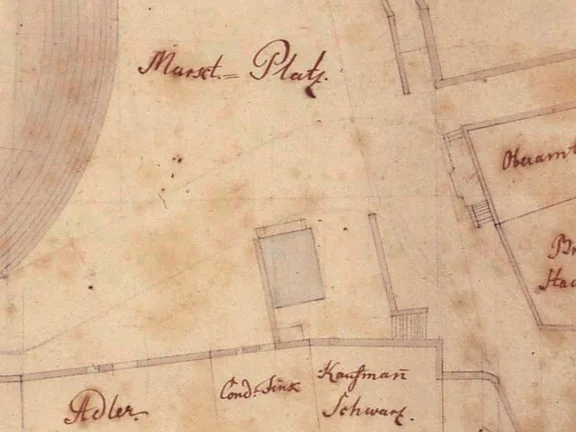 Marckt.= Platz.
Oberamt
Adler.
Cond: Finx
Kaufman̄
Schwarz.